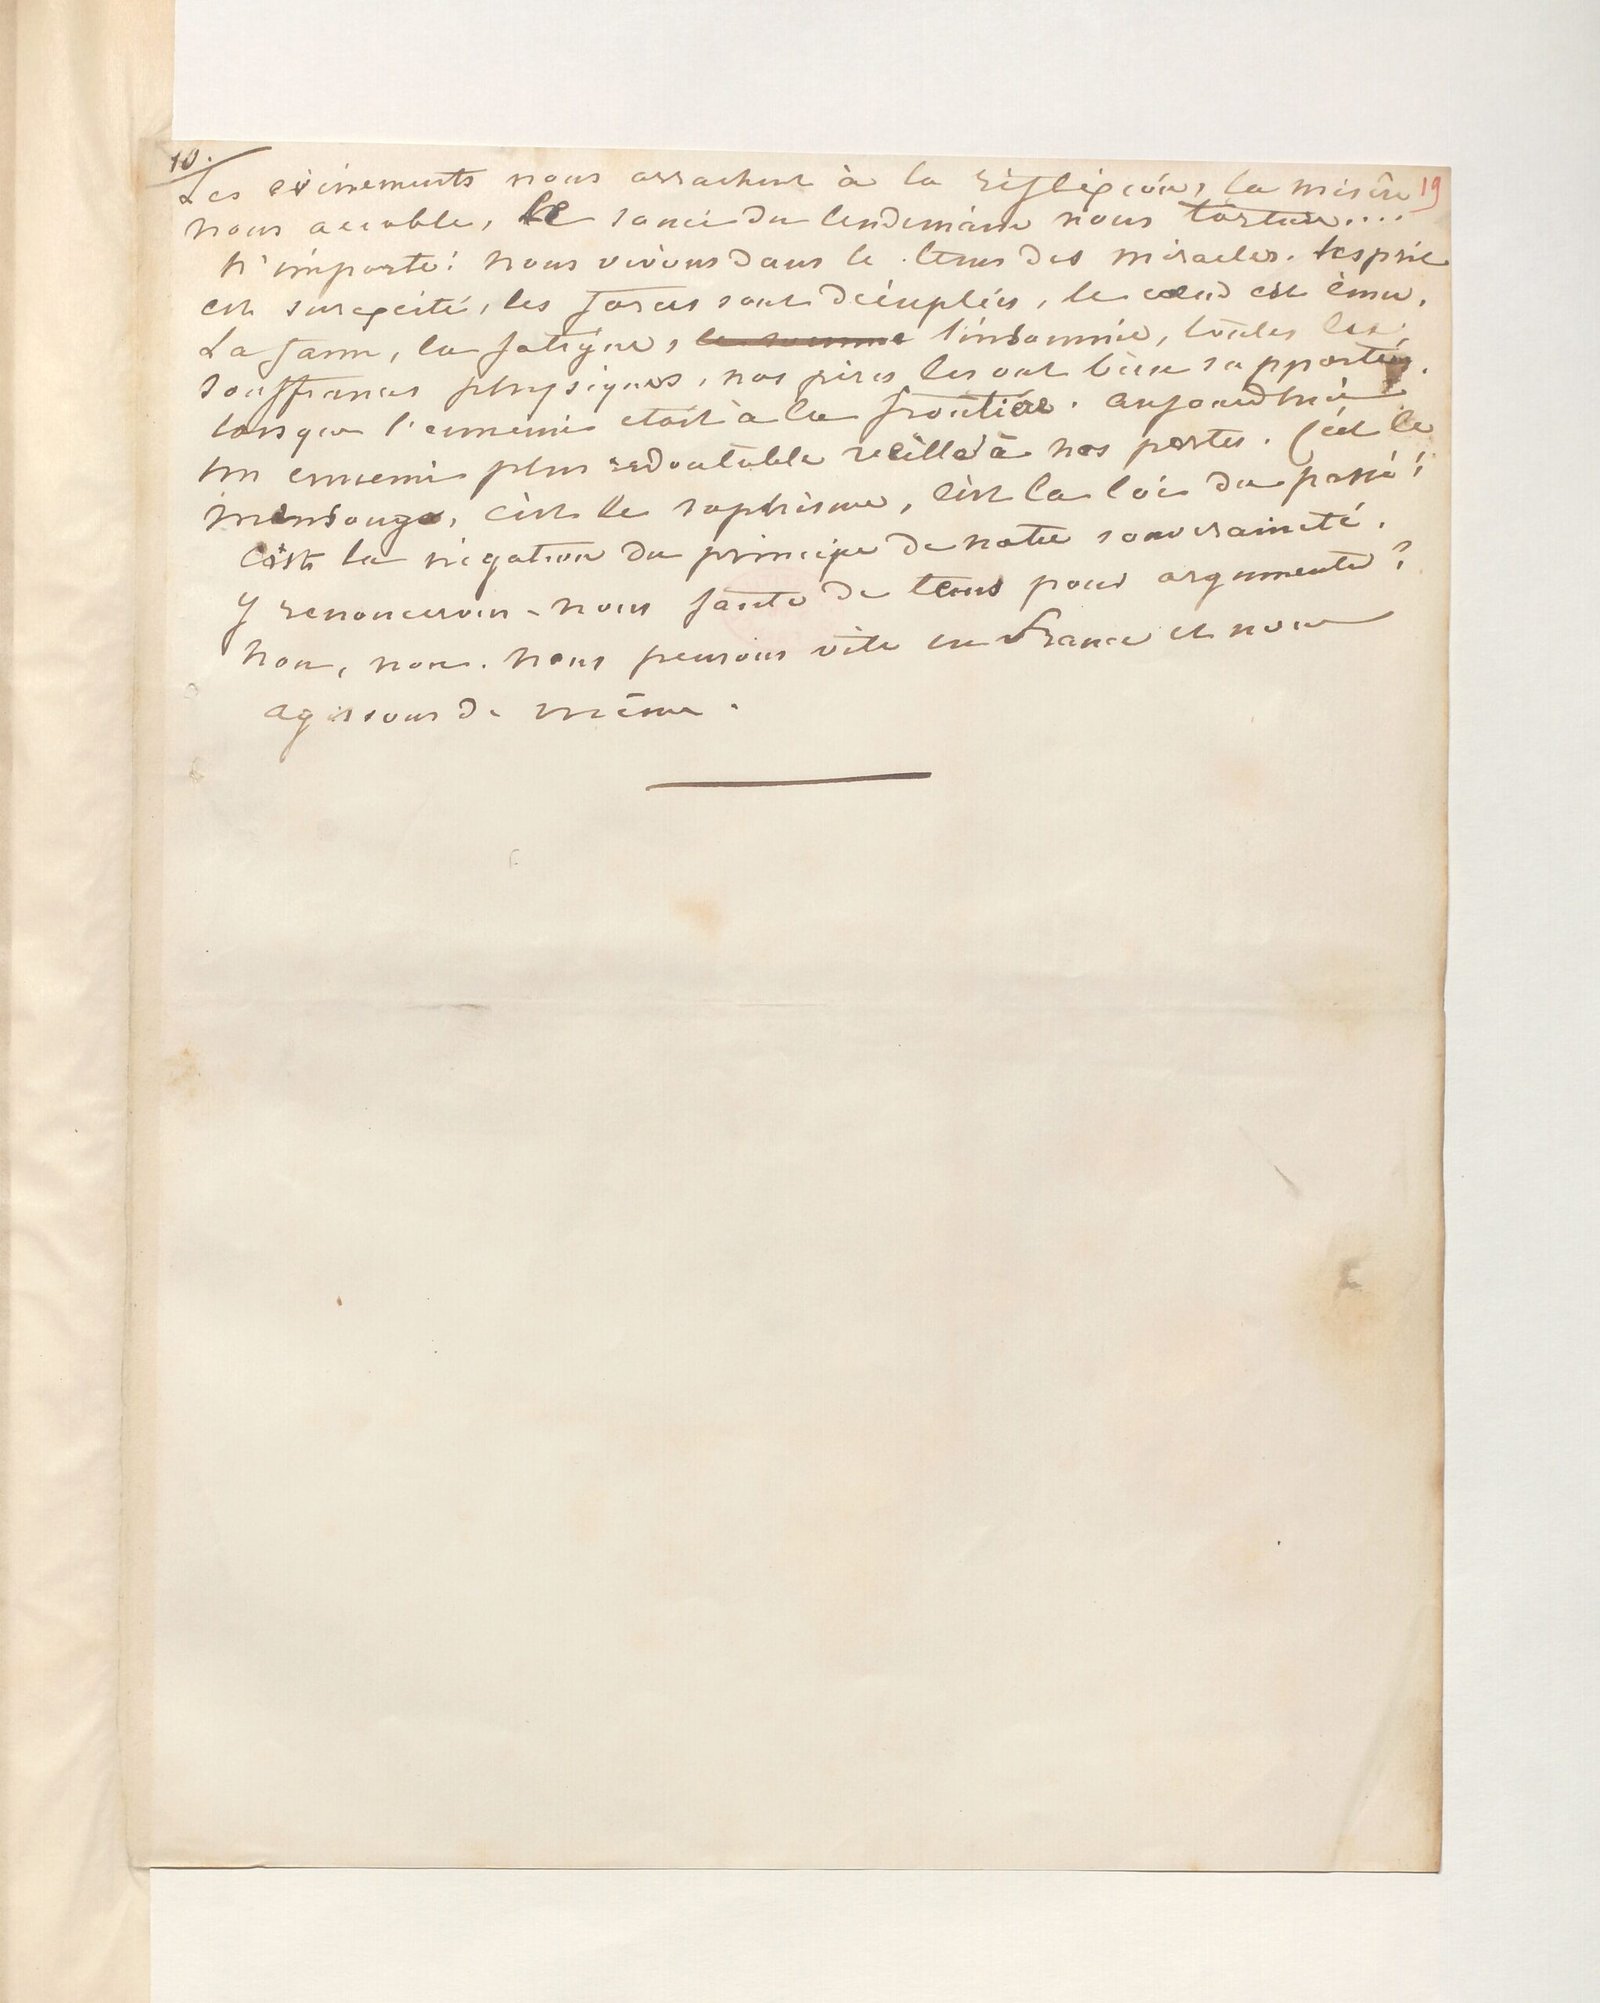 10.
19
Les évènements nous arrachent à la réflexion, la misère
nous accable, le souci du lendemain nous torture....
N'importe! nous vivons dans le tems des miracles. l'esprit
est surexcité, les forces sont décuplées, le cœur est ému.
La faim, la fatigue, l'insomnie, toutes les
souffrances physiques, nos pères les ont bien supportées,
lorsque l'ennemi etait à la frontière. aujourd'hui
un ennemi plus redoutable veille à nos portes. C'est le
mensonge, c'est le sophisme, c'est la loi du passé!
C'est la négation du principe de notre souveraineté.
Y renoncerons-nous faute de tems pour argumenter?
Non, non. Nous pensons vite en France et nous
agissons de même.